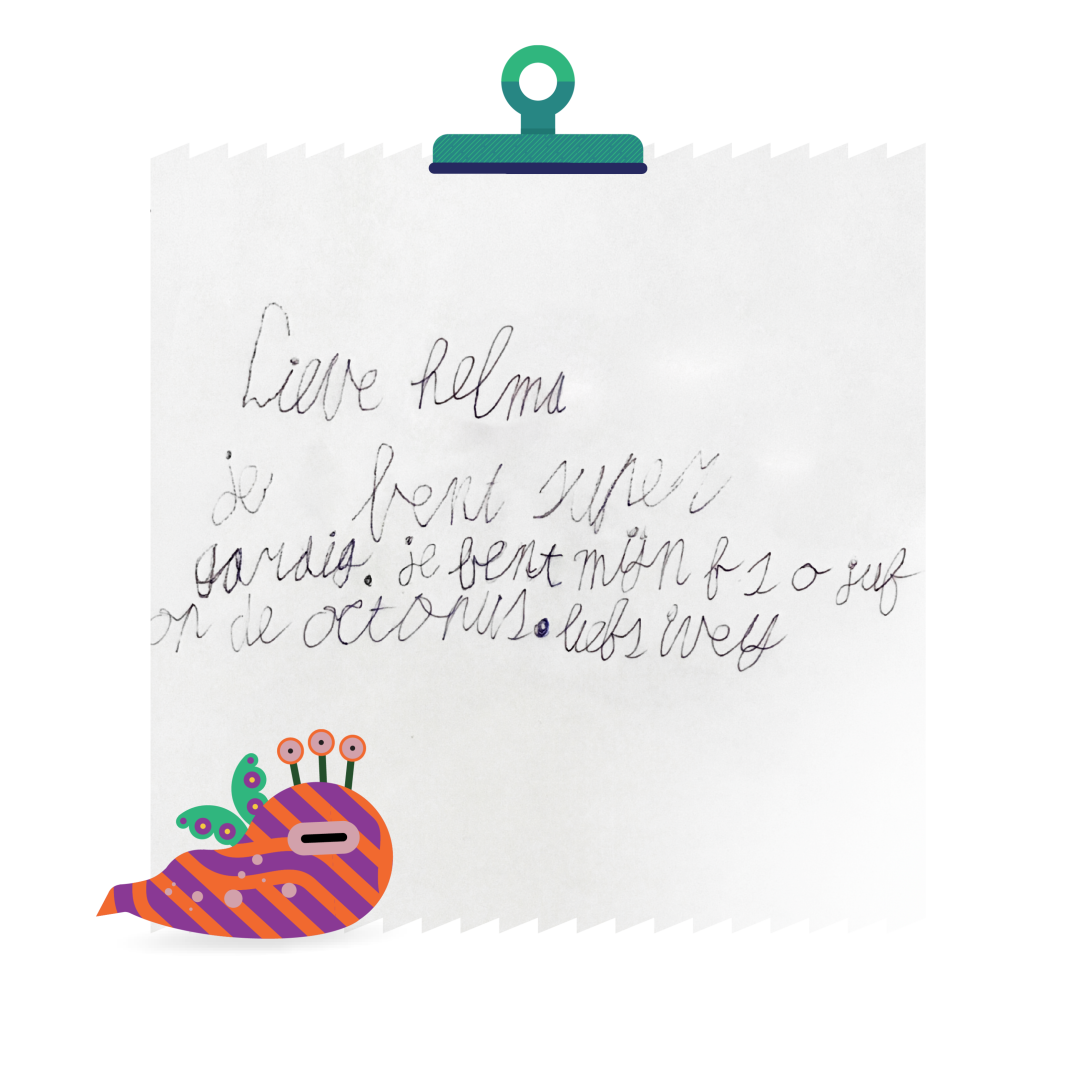 Lieve helma
je bent super
aardig. je bent mijn bso juf
op de octopus. liefs